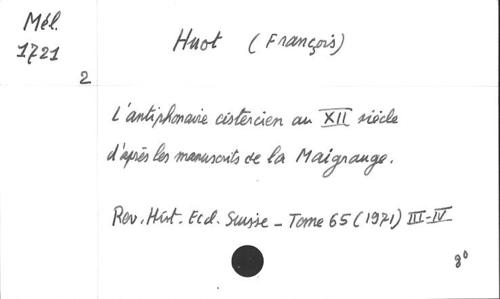 Mél.
1721
2
Huot (François)
L'antiphonaire cistercien au XII siècle
d'après les manuscrits de la Maigrauge.
Rev. Hist. Eccl. Suisse - Tome 65 (1971) III-IV
8°